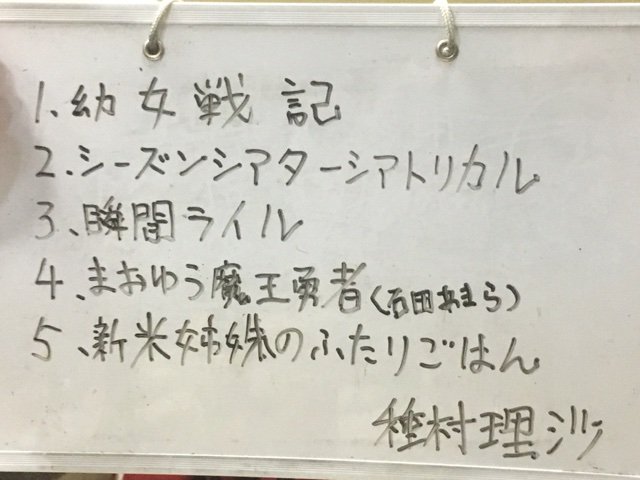 1、幼女戦記
2、シーズンシアターシアトリカル
3、瞬間ライル
4、まおゆう魔王勇者(石田あきら)
5、新米姉妹のふたりごはん
種村理沙